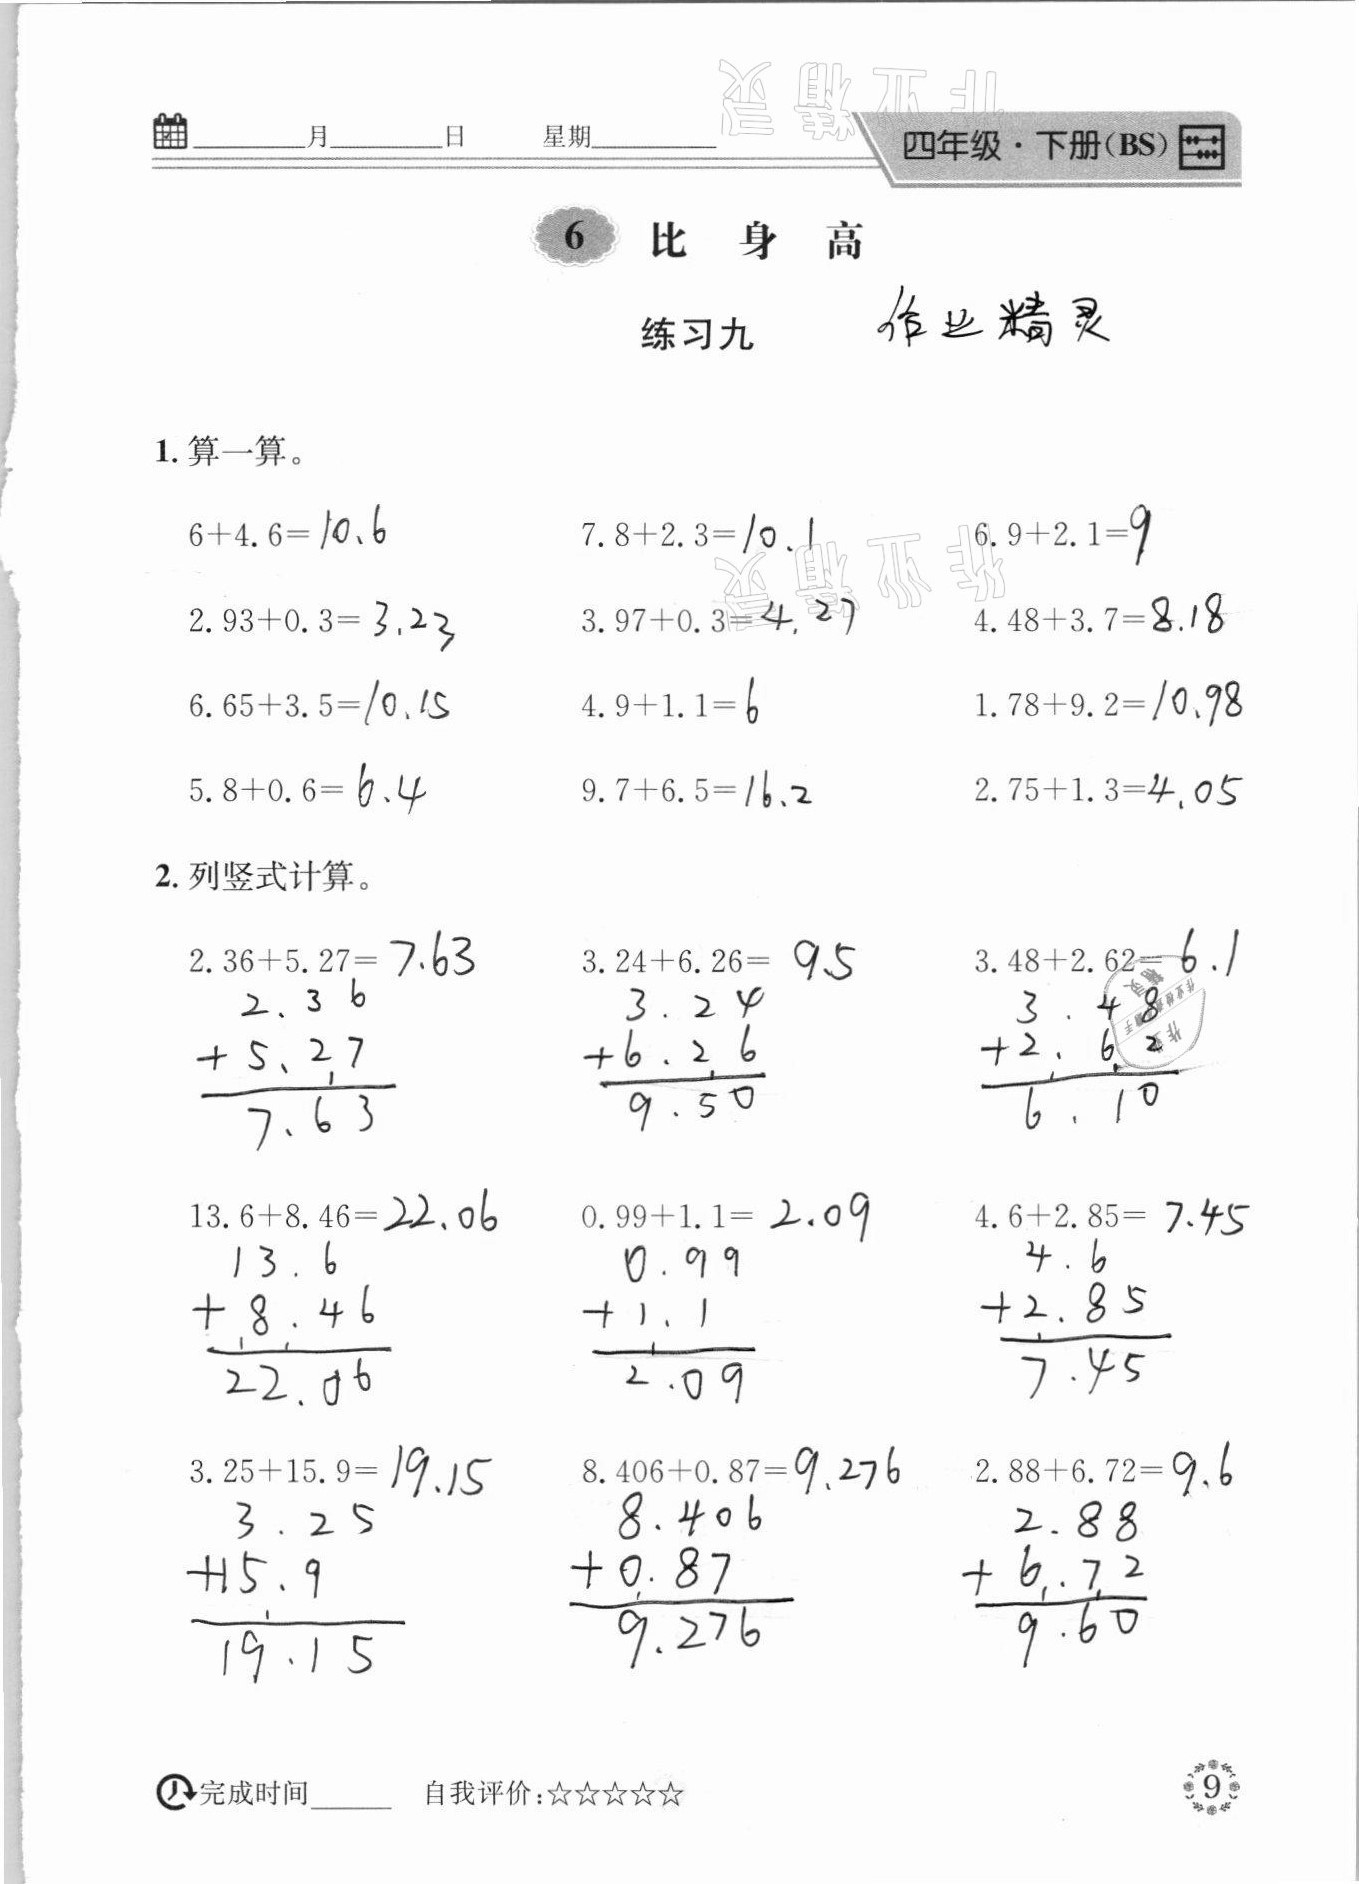 灵精业作
____月____日 星期____ 四年级·下册(BS)
6 比身高
练习九 作业精灵
1. 算一算。
6+4.6=10.6 7.8+2.3=10.1 6.9+2.1=9
灵精业作
2.93+0.3=3.23 3.97+0.3=4.27 4.48+3.7=8.18
6.65+3.5=10.15 4.9+1.1=6 1.78+9.2=10.98
5.8+0.6=6.4 9.7+6.5=16.2 2.75+1.3=4.05
2. 列竖式计算。
2.36+5.27=7.63 3.24+6.26=9.5 3.48+2.62=6.1
2.36 3.24 3.48
+5.27 +6.26 +2.62
7.63 9.50 6.10
13.6+8.46=22.06 0.99+1.1=2.09 4.6+2.85=7.45
13.6 0.99 4.6
+8.46 +1.1 +2.85
22.06 2.09 7.45
3.25+15.9=19.15 8.406+0.87=9.276 2.88+6.72=9.6
3.25 8.406 2.88
+15.9 +0.87 +6.72
19.15 9.276 9.60
完成时间____ 自我评价:☆☆☆☆☆ 9